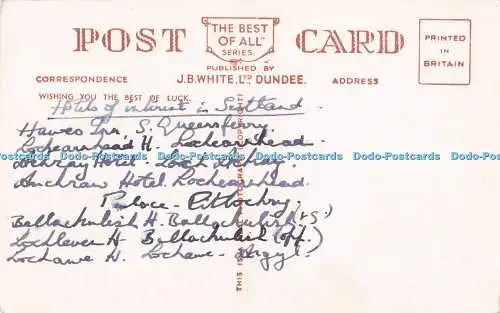 POST CARD
"THE BEST OF ALL" SERIES.
PRINTED IN BRITAIN
PUBLISHED BY
CORRESPONDENCE J.B. WHITE, LTD DUNDEE. ADDRESS
WISHING YOU THE BEST OF LUCK.
Hotels of interest in Scotland
Hawes Inn, S. Queensferry.
Lochearnhead H. Lochearnhead.
Achray Hotel - Loch Achray
Hotel Lochearnhead.
Palace - Pitlochry
Ballachulish H. Ballachulish
Lochleven H - Ballachulish
Lochawe H. Lochawe - Argyl.
THIS IS A PHOTOGRAPH (COPYRIGHT)
Dodo-Postcards Dodo-Postcards Dodo-Postcards Dodo-Postcards Dodo-Postcards Dodo-Postcards